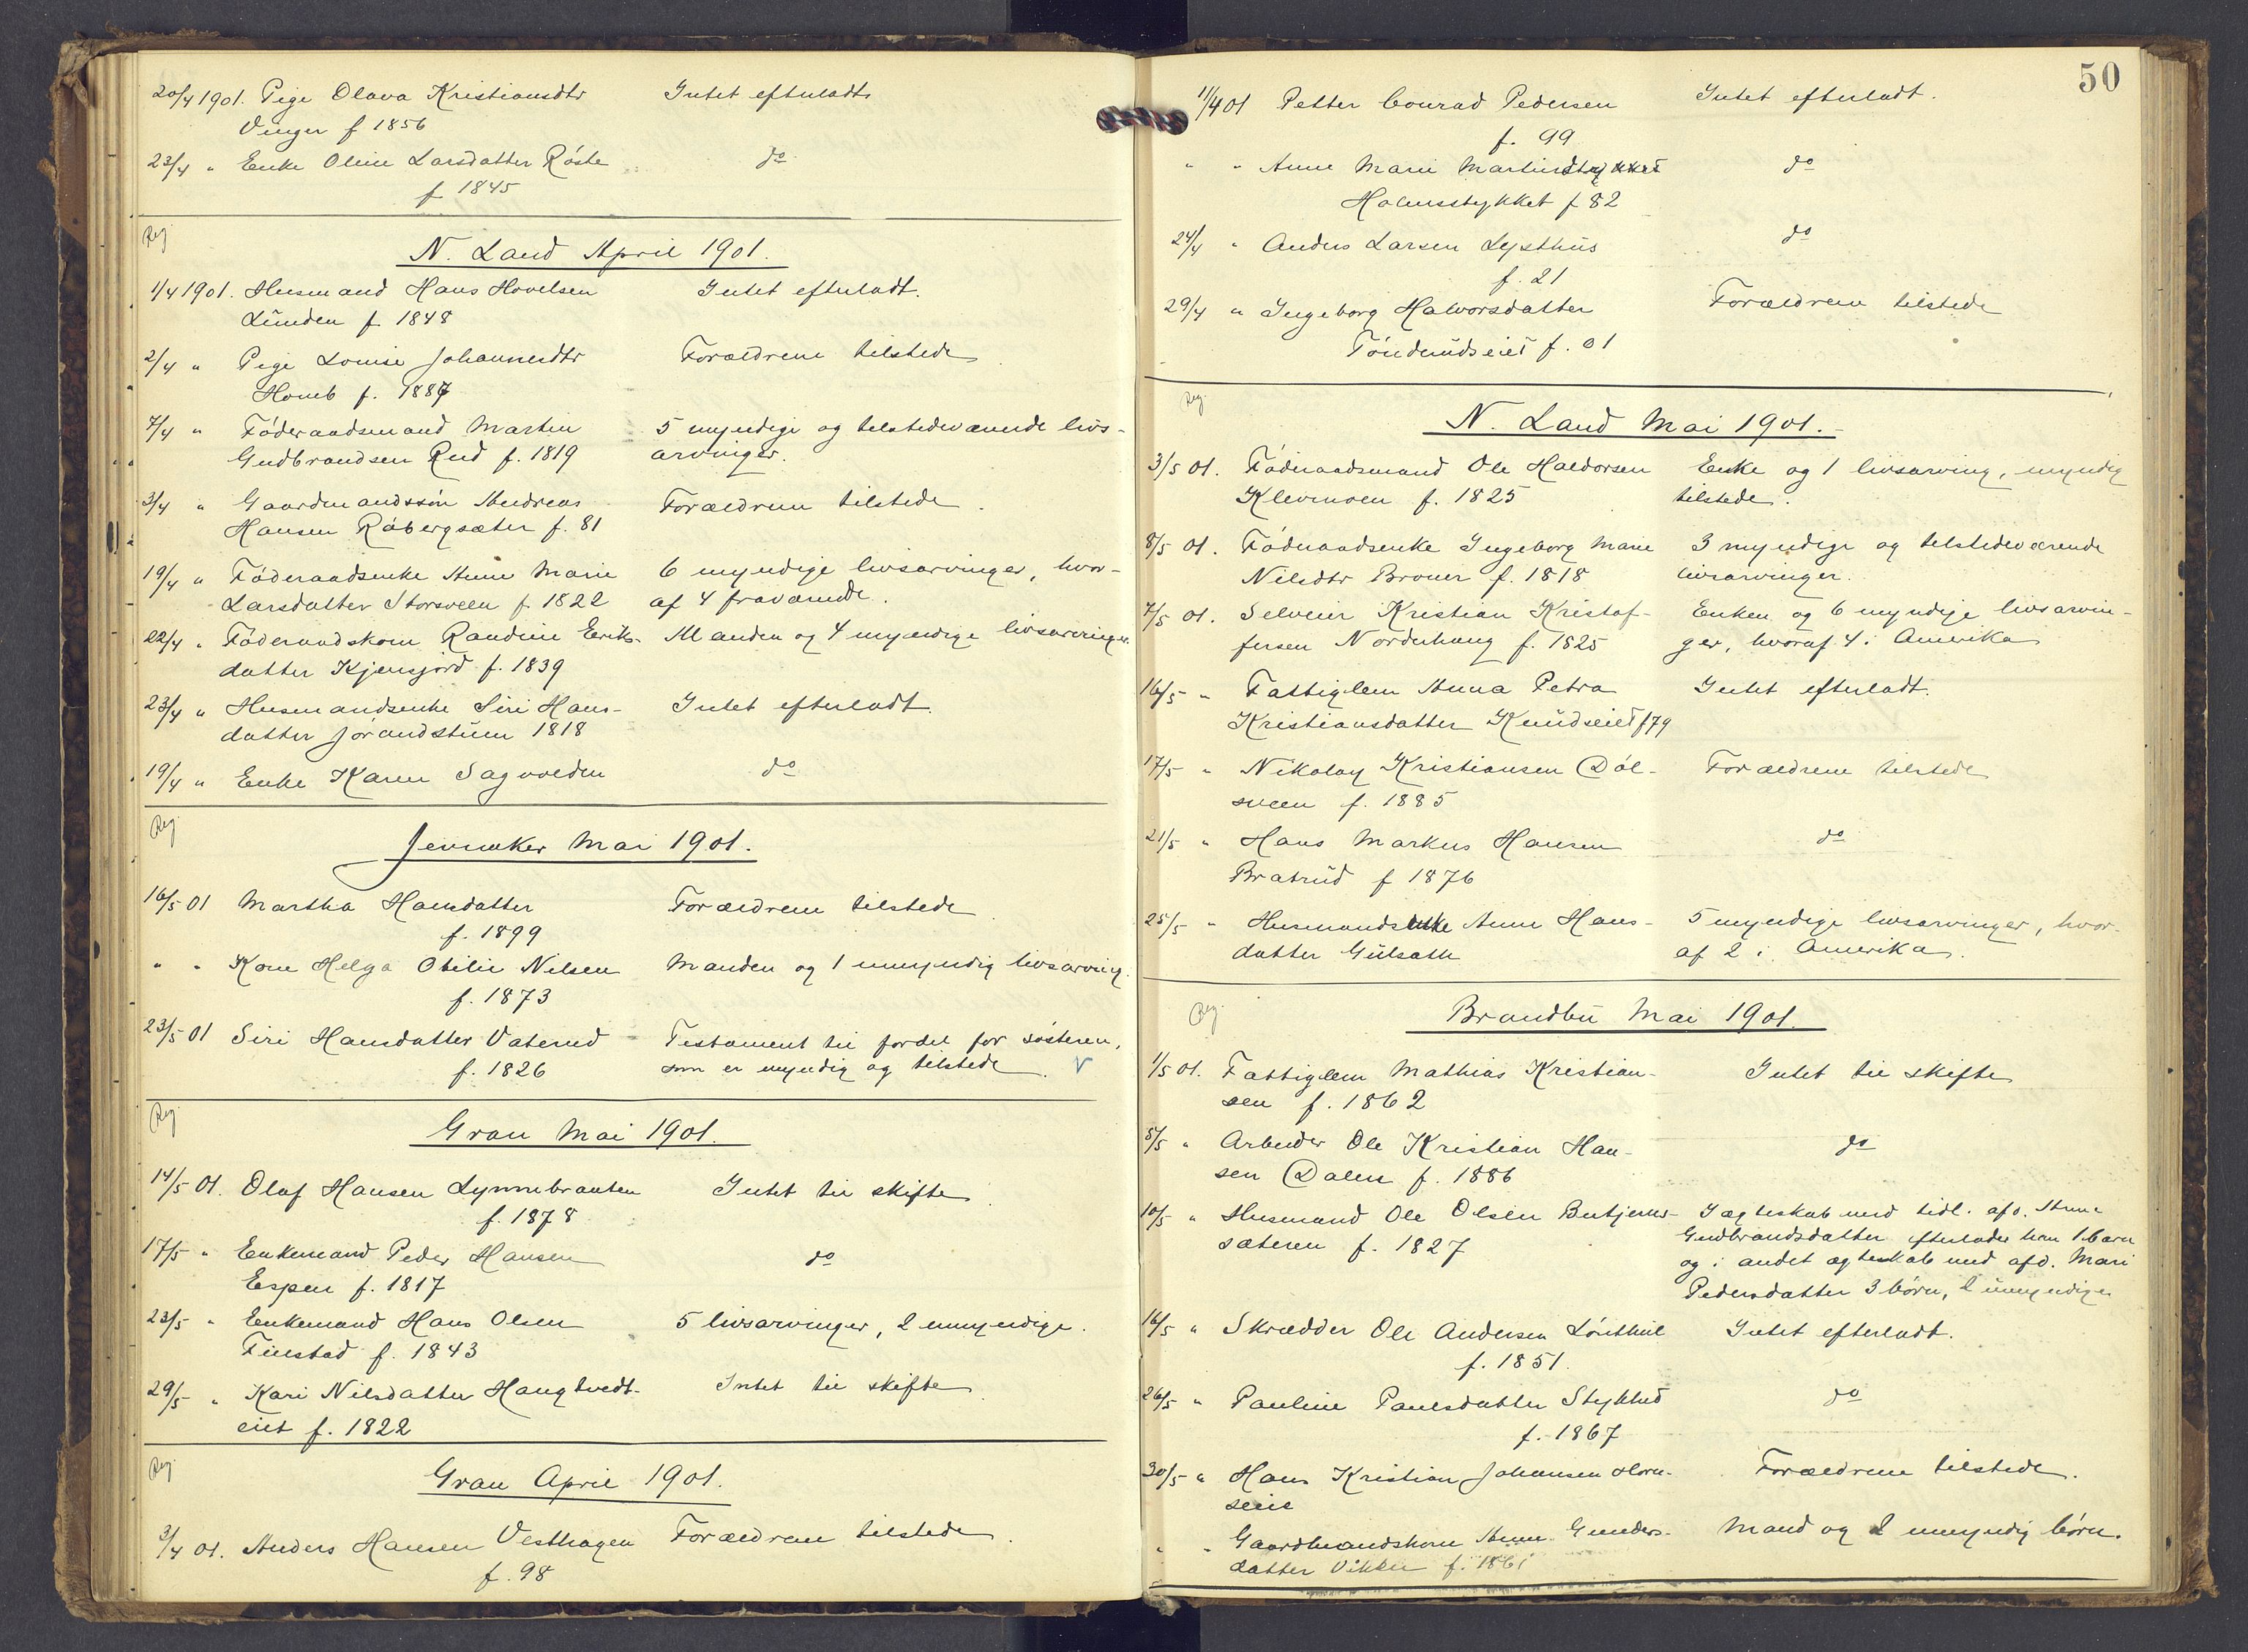 20/4 1901. Pige Olava Kristiansdtr Intet efterladt
Vinger f 1856
23/4 " Enke Oline Larsdatter Røste do
f 1845
Reg.
N. Land April 1901.
1/4 1901. Husmand Hans Hovelsen Intet efterladt.
Lunden f. 1848
2/4 " Pige Louise Johannesdtr Forældrene tilstede
Homb f. 1887
7/4 " Föderaadsmand Martin 5 myndige og tilstedeværende livs-
Gudbrandsen Rud f. 1819 arvinger.
3/4 " Gaardmandssön Andreas Forældrene tilstede.
Hansen Råbergsæter f. 81
19/4 " Föderaadsenke Anne Marie 6 myndige livsarvinger, hvor-
Larsdatter Storsveen f. 1822 af 4 fraværende.
22/4 " Föderaadskone Randine Eriks- Manden og 4 myndige livsarvinger.
datter Kjensjord f. 1839
23/4 " Husmandsenke Siri Hans- Intet efterladt.
datter Jörandstuen 1818
19/4 " Enke Karen Sagvolden do
Reg.
Jevnaker Mai 1901.
16/5 01 Martha Hansdatter Forældrene tilstede.
f. 1899
" " Kone Helga Otilie Nilsen Manden og 1 umyndig livsarving.
f. 1873
23/5 01 Siri Hansdatter Vaterud Testament til fordel for søsteren,
f. 1826 som er myndig og tilstede.
Reg.
Gran Mai 1901.
14/5 01. Olaf Hansen Lynnebraaten Intet til skifte
f. 1878
17/5 " Enkemand Peder Hansen do
Espen f. 1817
23/5 " Enkemand Hans Olsen 5 livsarvinger, 2 umyndige.
Finstad f. 1843
29/5 " Kari Nilsdatter Haugtvedt- Intet til skifte.
eiet f. 1822
Reg.
Gran April 1901.
3/4 01. Anders Hansen Vesthagen Forældrene tilstede.
f. 98
50
11/4 01 Petter Conrad Pedersen Intet efterladt.
f. 99
" " Anne Marie do
Holmsstykket f 82
24/4 " Anders Larsen Lysthus do
f. 21
29/4 " Ingeborg Halvorsdatter Forældrene tilstede
Tönderudseiet f. 01
Reg.
N. Land Mai 1901.
3/5 01. Föderaadsmand Ole Haldorsen Enke og 1 livsarving, myndig
Klevmoen f. 1825 tilstede.
8/5 01. Föderaadsenke Ingeborg Marie 3 myndige og tilstedeværende
Nilsdtr Broner f. 1818 livsarvinger.
7/5 01. Selveier Kristian Kristof- Enken og 6 myndige livsarvin-
fersen Norderhaug f. 1825 ger, hvoraf 4 i Amerika
16/5 " Fattiglem Anna Petra Intet efterladt.
Kristiansdatter Knudseiet f 79
17/5 " Nikolay Kristiansen Döl- Forældrene tilstede
sveen f. 1885
21/5 " Hans Markus Hansen do
Bratrud f 1876
25/5 " Husmandsenke Anne Hans- 5 myndige livsarvinger, hvor-
datter Gulsath af 2 i Amerika.
Reg.
Brandbu Mai 1901.
1/5 01. Fattiglem Mathias Kristian- Intet til skifte
sen f. 1862
5/5 " Arbeider Ole Kristian Han- do
sen Dalen f. 1886
10/5 " Husmand Ole Olsen I ægteskab med tidl. afd. Anne
sæteren f. 1827 Gudbrandsdatter efterlader han 1 barn
og i andet ægteskab med afd. Mari
Pedersdatter 3 børn, 2 umyndige
16/5 " Skrædder Ole Andersen Intet efterladt.
f. 1851.
26/5 " Pauline Paulsdatter do
f. 1867
30/5 " Hans Kristian Johansen Horn- Forældrene tilstede.
seie
" " Gaardmandskone Anne Gunders- Mand og 2 umyndig børn.
datter Vikken f. 1861